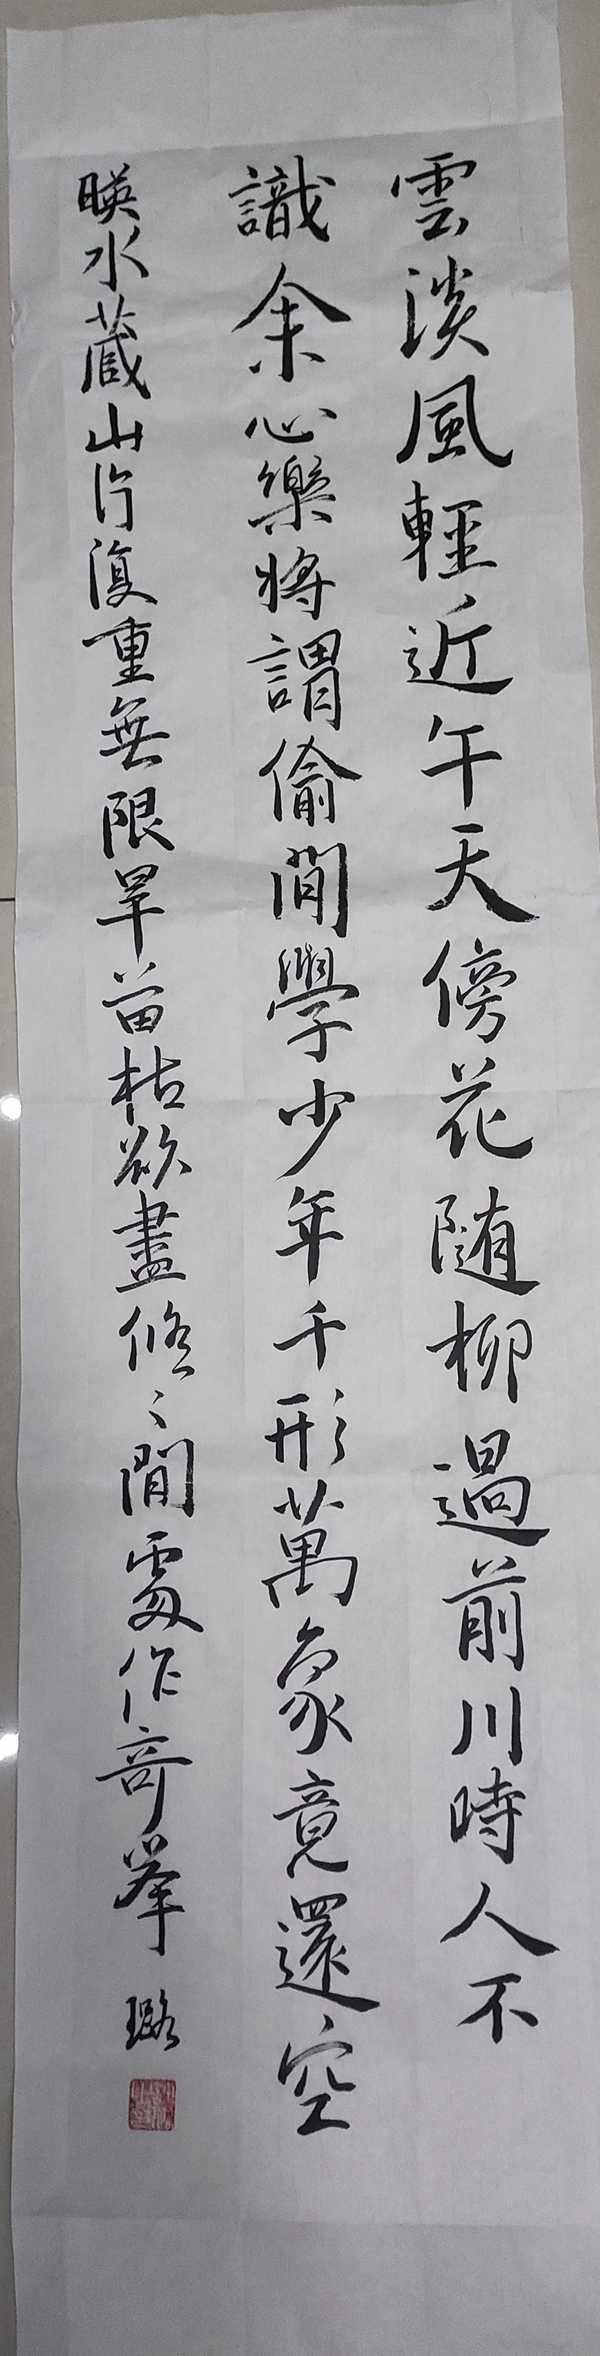 雲淡風輕近午天傍花随柳過前川時人不
識余心樂將謂偷閒學少年千形萬象竟還空
暎水蔵山片復重無限旱苗枯欲盡悠〻閒處作奇峯
璐